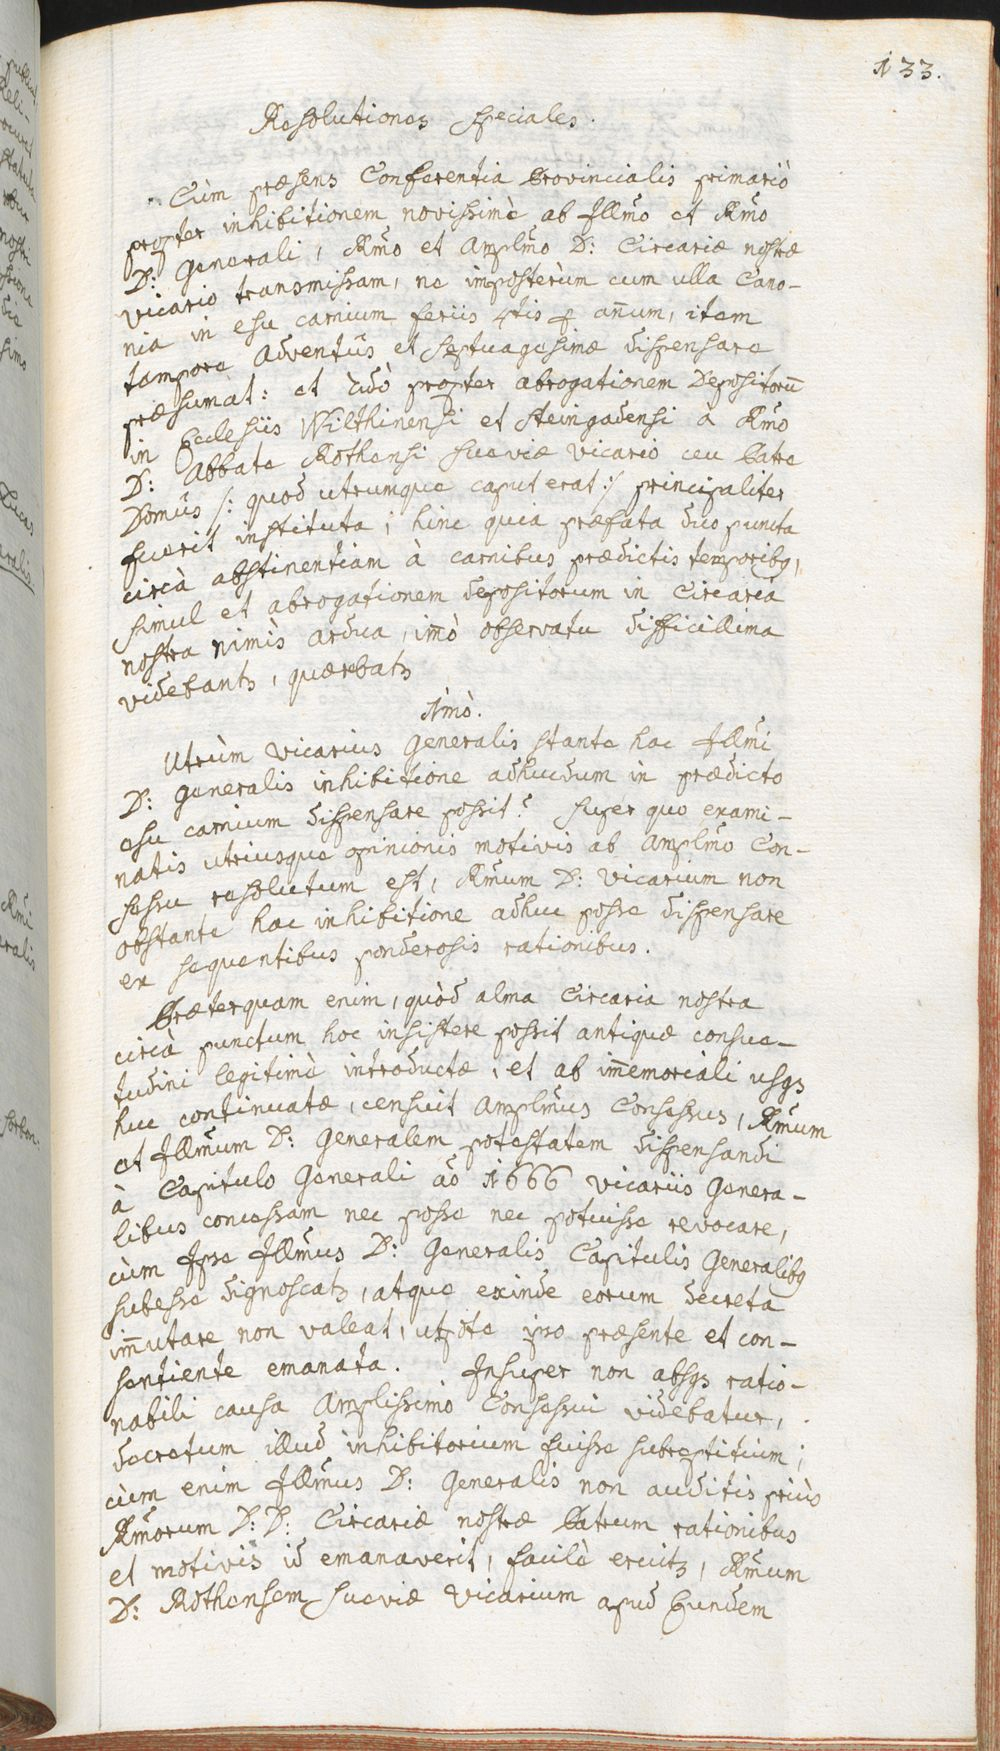 133.
Resolutiones speciales.
Cùm præsens Conferentia Provincialis primariò
propter inhibitionem novissimè ab Illm̃o et Rm̃o
D: Generali, Rm̃o et Amplm̃o D: Circariæ nostræ
vicario transmissam, ne imposterùm cum ulla Cano-
nia in esu carnium feriis 4tis p añum, item
tempore Adventûs et Septuagesimæ dispensare
præsumat: et 2dò propter abrogationem Depositorũ
in Ecclesiis Wilthinensi et Steingadensi à Rm̃o
D: Abbate Rothensi Sueviæ vicario ceu Patre
Domûs /: quod utrumque caput erat :/ principaliter
fuerit instituta; hinc quia præfata duo puncta
circà abstinentiam à carnibus prædictis temporibq,
simul et abrogationem depositorum in Circaria
nostra nimìs ardua, im̃ò observatu difficillima
videbantr, quærebatr
1mò.
Utrùm vicarius Generalis stante hac Illm̃i
D: Generalis inhibitione adhucdum in prædicto
esu carnium dispensare possit? Super quo exami-
natis utriusque opinionis motivis ab Amplm̃o Con-
sessu resolutum est, Rm̃um D: vicarium non
obstante hac inhibitione adhuc posse dispensare
ex sequentibus ponderosis rationibus.
Præterquam enim, quòd alma Circaria nostra
circà punctum hoc insistere possit antiquæ consue-
tudini legitimè introductæ, et ab im̃emoriali usqs
huc continuatæ, censuit Amplm̃us Consessus, Rm̃um
et Illm̃um D: Generalem potestatem dispensandi
à Capitulo Generali aõ 1666 vicariis Genera-
libus concessam nec posse nec potuisse revocare,
cùm Ipse Illm̃us D: Generalis Capitulis Generalibq
subesse dignoscatr, atque exinde eorum decreta
im̃utare non valeat, utpote ipso præsente et con-
sentiente emanata. Insuper non absqs ratio-
nabili causa Amplissimo Consessui videbatur,
decretum illud inhibitorium fuisse subreptitium;
cùm enim Illm̃us D: Generalis non auditis priùs
Rm̃orum D: D: Circariæ nostræ Patrum rationibus
et motivis id emanaverit, facilè eruitr, Rm̃um
D: Rothensem Sueviæ Vicarium apud Eundem